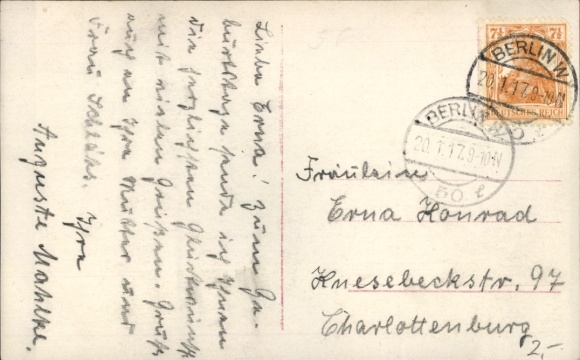 Liebe Erna! Zum Ge-
burtstage sende ich Ihnen
die herzlichsten Glückwünsche
mit vielen Grüßen. Gruß
auch an Ihre Mutter und
Frau Schläks. Ihre
Auguste Mahlke.
7½ 7½
DEUTSCHES REICH
BERLIN W
20.1.17.9-10N
BERLIN W
20.1.17.9-10N
50 l
Fräulein
Erna Konrad
Knesebeckstr. 97
Charlottenburg
2-